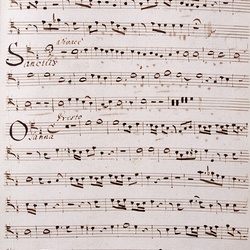 Vivace
Sanctus
Presto
Osanna